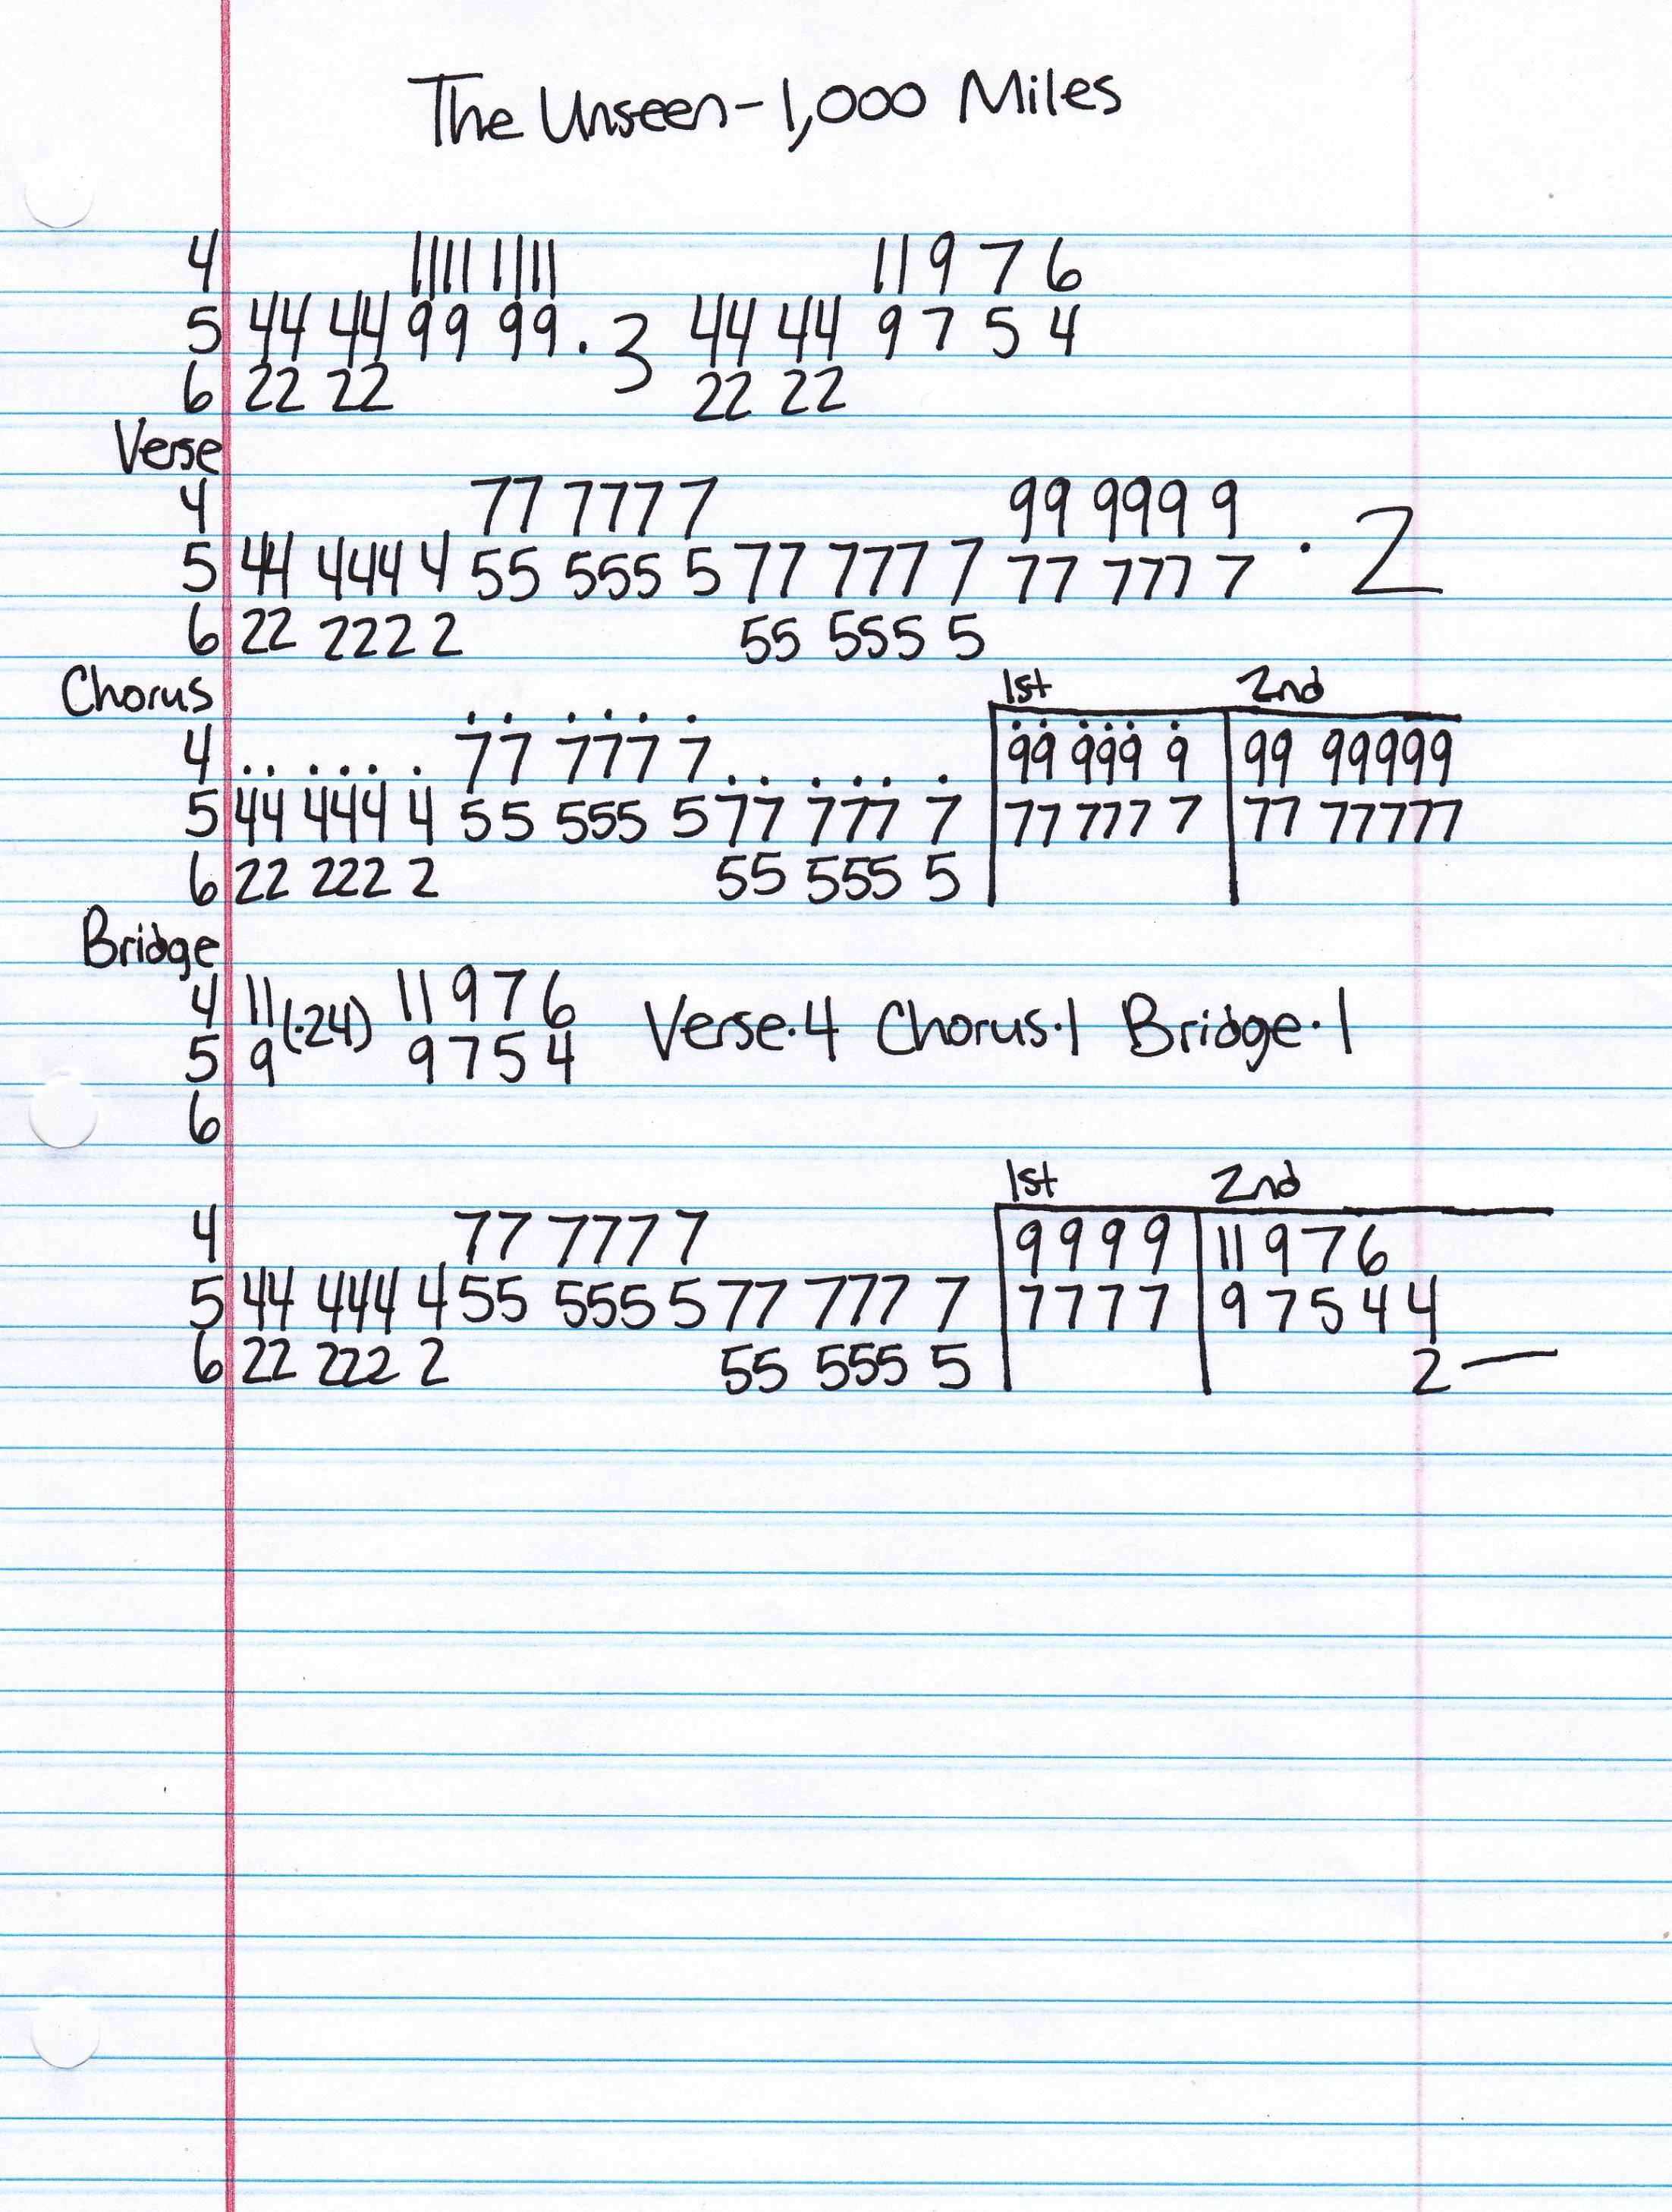 The Unseen - 1,000 Miles
4 1111 1111 11 9 7 6
5 44 44 99 99 . 3 44 44 9 7 5 4
6 22 22 22 22
Verse
4 77 777 7 99 999 9
5 44 444 4 55 555 5 77 777 7 77 777 7 . 2
6 22 222 2 55 555 5
Chorus 1st 2nd
4 .. ... . 77 777 7 .. ... . 99 999 9 99 99999
5 44 444 4 55 555 5 77 777 7 77 777 7 77 77777
6 22 222 2 55 555 5
Bridge
4 11 (.24) 11 9 7 6 Verse.4 Chorus.1 Bridge.1
5 9 9 7 5 4
6
1st 2nd
4 77 777 7 9 9 9 9 11 9 7 6
5 44 444 4 55 555 5 77 777 7 7 7 7 7 9 7 5 4 4
6 22 222 2 55 555 5 2 —